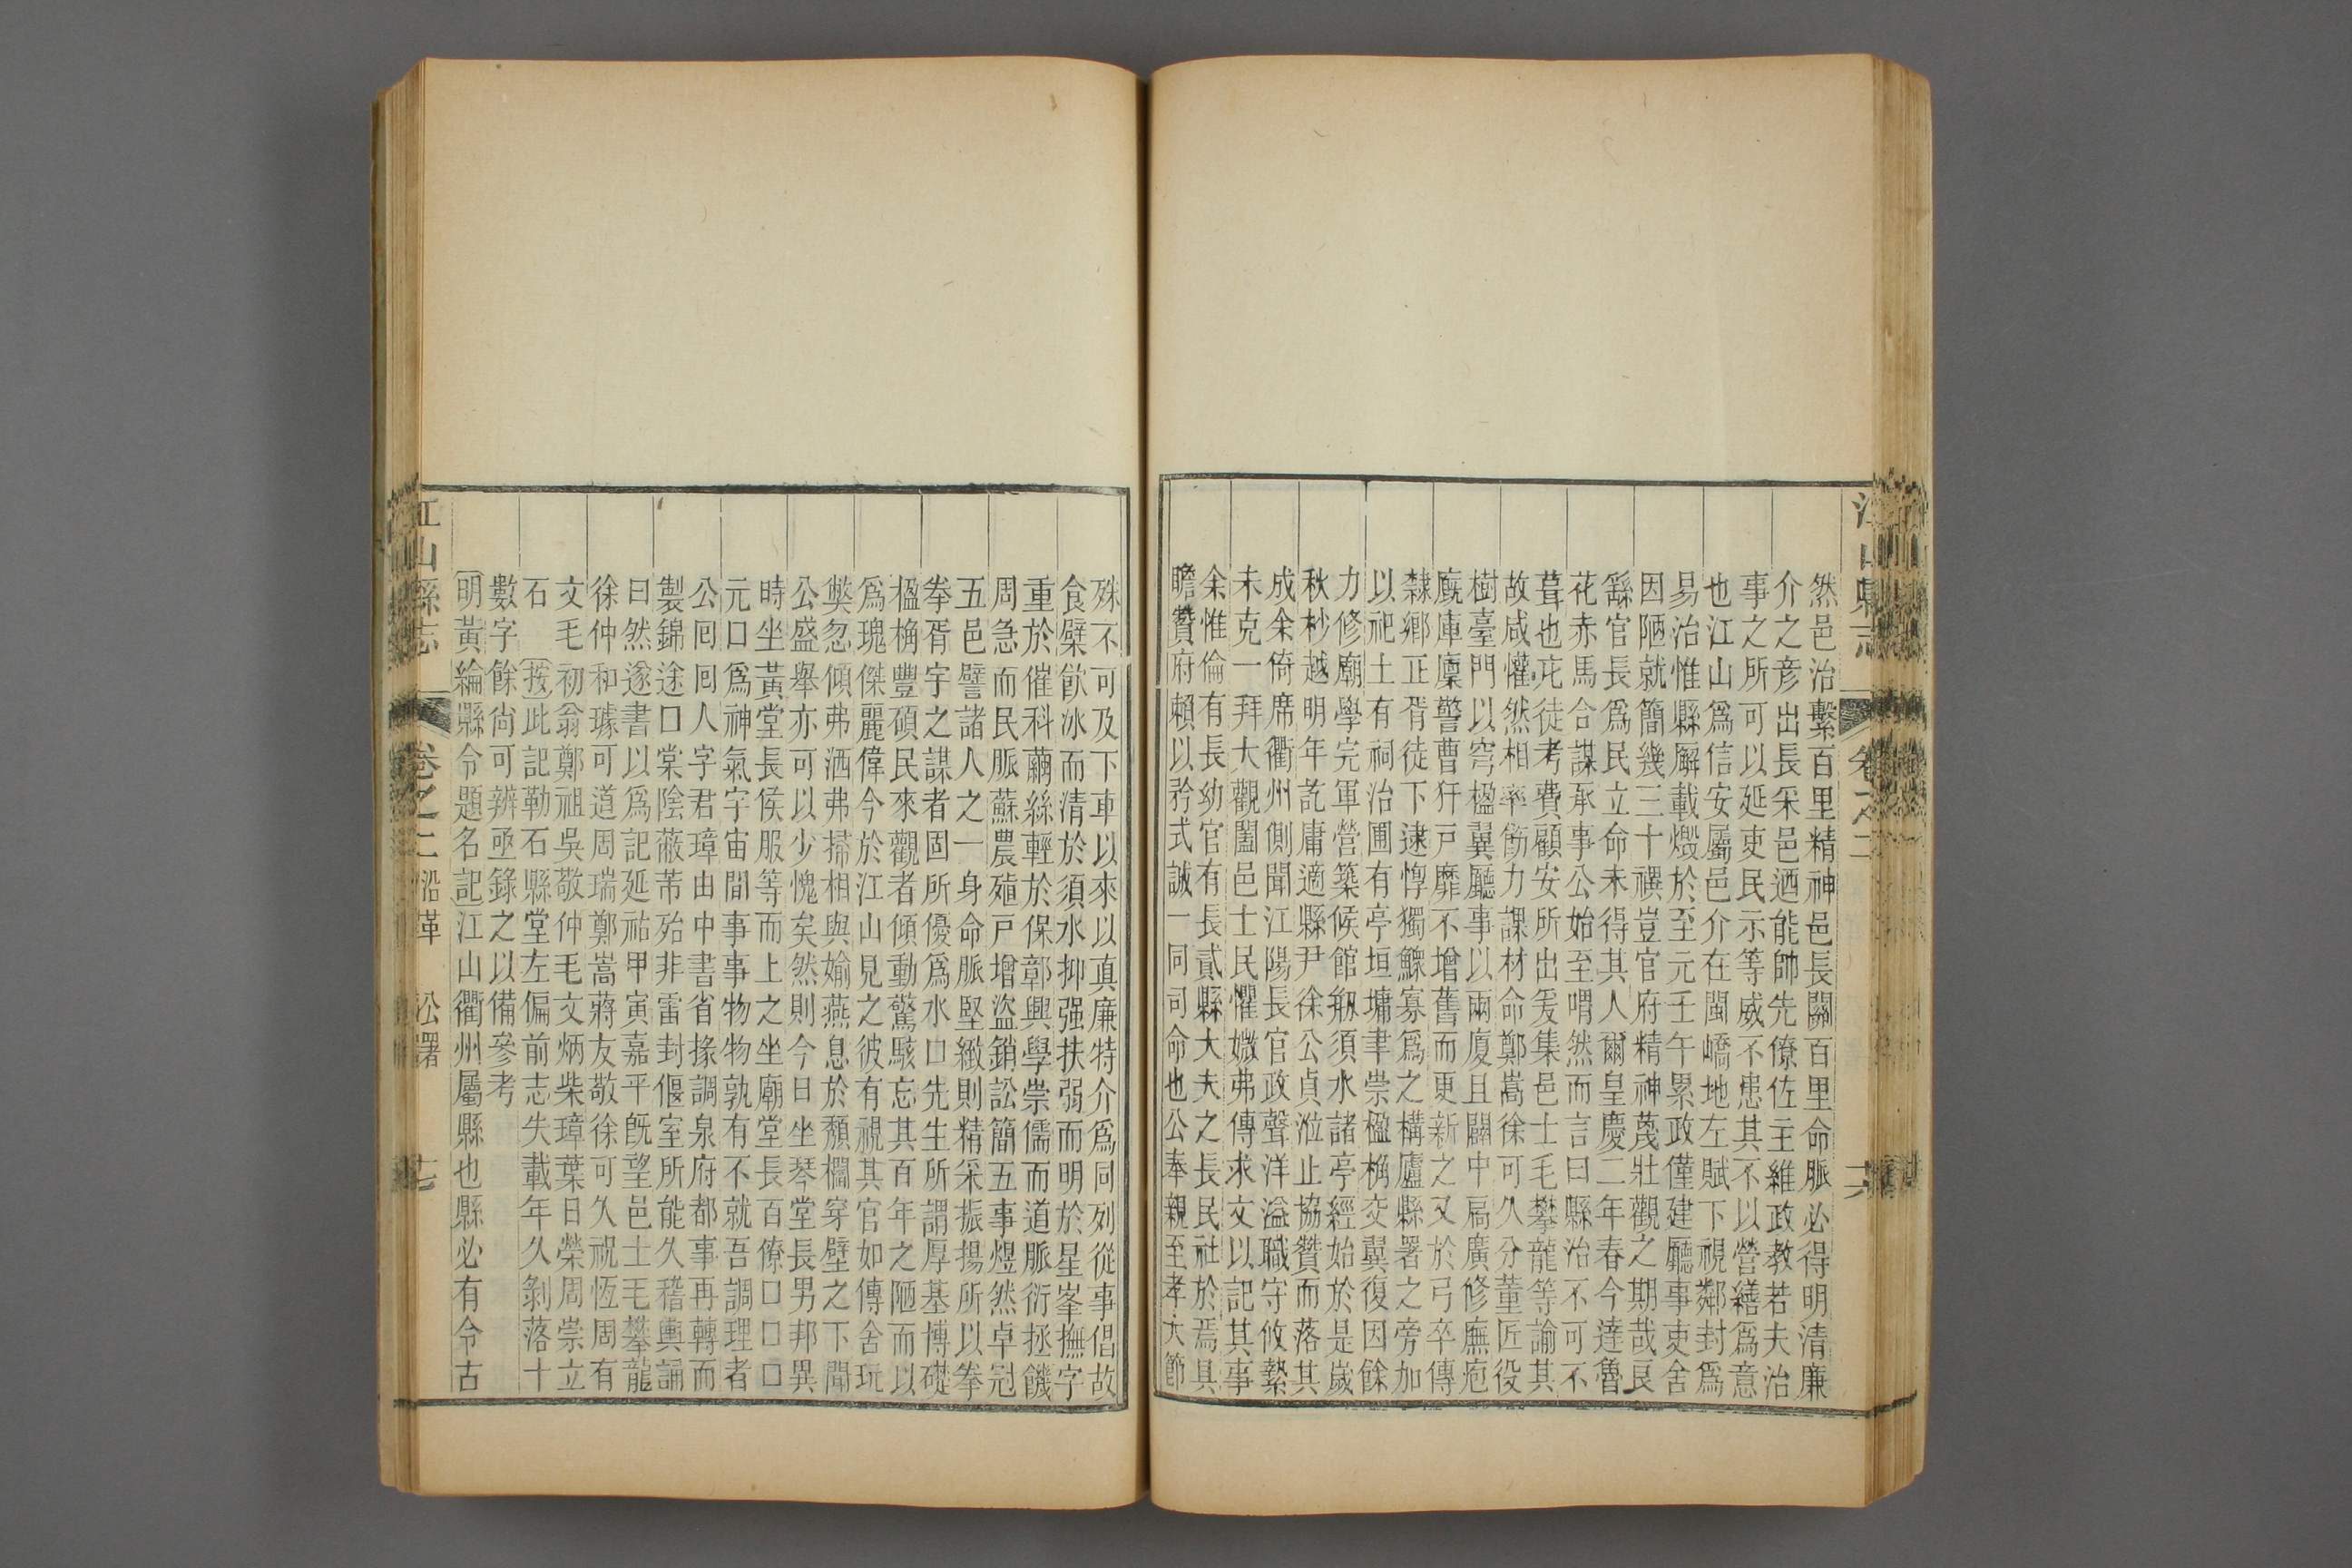 然邑治繫百里精神邑長關百里命脈必得明清廉
介之彥出長采邑迺能帥先僚佐主維政教若夫治
事之所可以延吏民示等威不患其不以營繕爲意
也江山爲信安屬邑介在閩嶠地左賦下視鄰封爲
易治惟縣廨載燬於至元壬午累政僅建廳事吏舍
因陋就簡幾三十禩豈官府精神蔑壯觀之期哉良
繇官長爲民立命未得其人爾皇慶二年春今達魯
花赤馬合謀承事公始至喟然而言曰縣治不可不
葺也庀徒考費顧安所出爰集邑士毛攀龍等諭其
故咸懽然相率簕力課材命鄭嵩徐可久分董匠役
樹臺門以穹楹翼廳事以兩廈且闢中扃廣修廡庖
廐庫廩警曹犴戸靡不增舊而更新之又於弓卒傳
隸鄉正胥徒下逮惸獨鰥寡爲之構廬縣署之旁加
以祀土有祠治圃有亭垣墉聿崇楹桷交翼復因餘
力修廟學完軍營築候館剏須水諸亭經始於是嵗
秋杪越明年訖庸適縣尹徐公貞涖止協贊而落其
成余倚席衢州側聞江陽長官政聲洋溢職守攸縶
未克一拜大觀闔邑士民懼媺弗傳求文以記其事
余惟倫有長幼官有長貳縣大夫之長民社於焉具
瞻贊府賴以矜式誠一同司命也公奉親至孝大節
殊不可及下車以來以眞廉特介爲同列從事倡故
食檗飮冰而清於須水抑强扶弱而明於星峯撫字
重於催科繭絲輕於保鄣興學崇儒而道脈衍拯饑
周急而民脈蘇農殖戸增盜銷訟簡五事煜然卓冠
五邑譬諸人之一身命脈堅緻則精采振揚所以拳
拳胥宇之謀者固所優爲水口先生所謂厚基博礎
楹桷豐碩民來觀者傾動驚駭忘其百年之陋而以
爲瑰傑麗偉今於江山見之彼有視其官如傳舍玩
獘忽傾弗洒弗掃相與媮燕息於頽欄穿壁之下聞
公盛舉亦可以少愧矣然則今日坐琴堂長男邦異
時坐黃堂長侯服等而上之坐廟堂長百僚口口口
元口爲神氣宇宙間事事物物孰有不就吾調理者
公囘囘人字君璋由中書省掾調泉府都事再轉而
製錦途口棠陰蔽芾殆非雷封偃室所能久稽輿誦
曰然遂書以爲記延祐甲寅嘉平旣望邑士毛攀龍
徐仲和璩可道周瑞鄭嵩蔣友敬徐可久祝恆周有
文毛初翁鄭祖吳敬仲毛文炳柴璋葉日榮周崇立
石 按此記勒石縣堂左偏前志失載年久剝落十
數字餘尙可辨亟錄之以備參考
明黃綸縣令題名記江山衢州屬縣也縣必有令古
江山縣志 卷之二 沿革 公署 十七